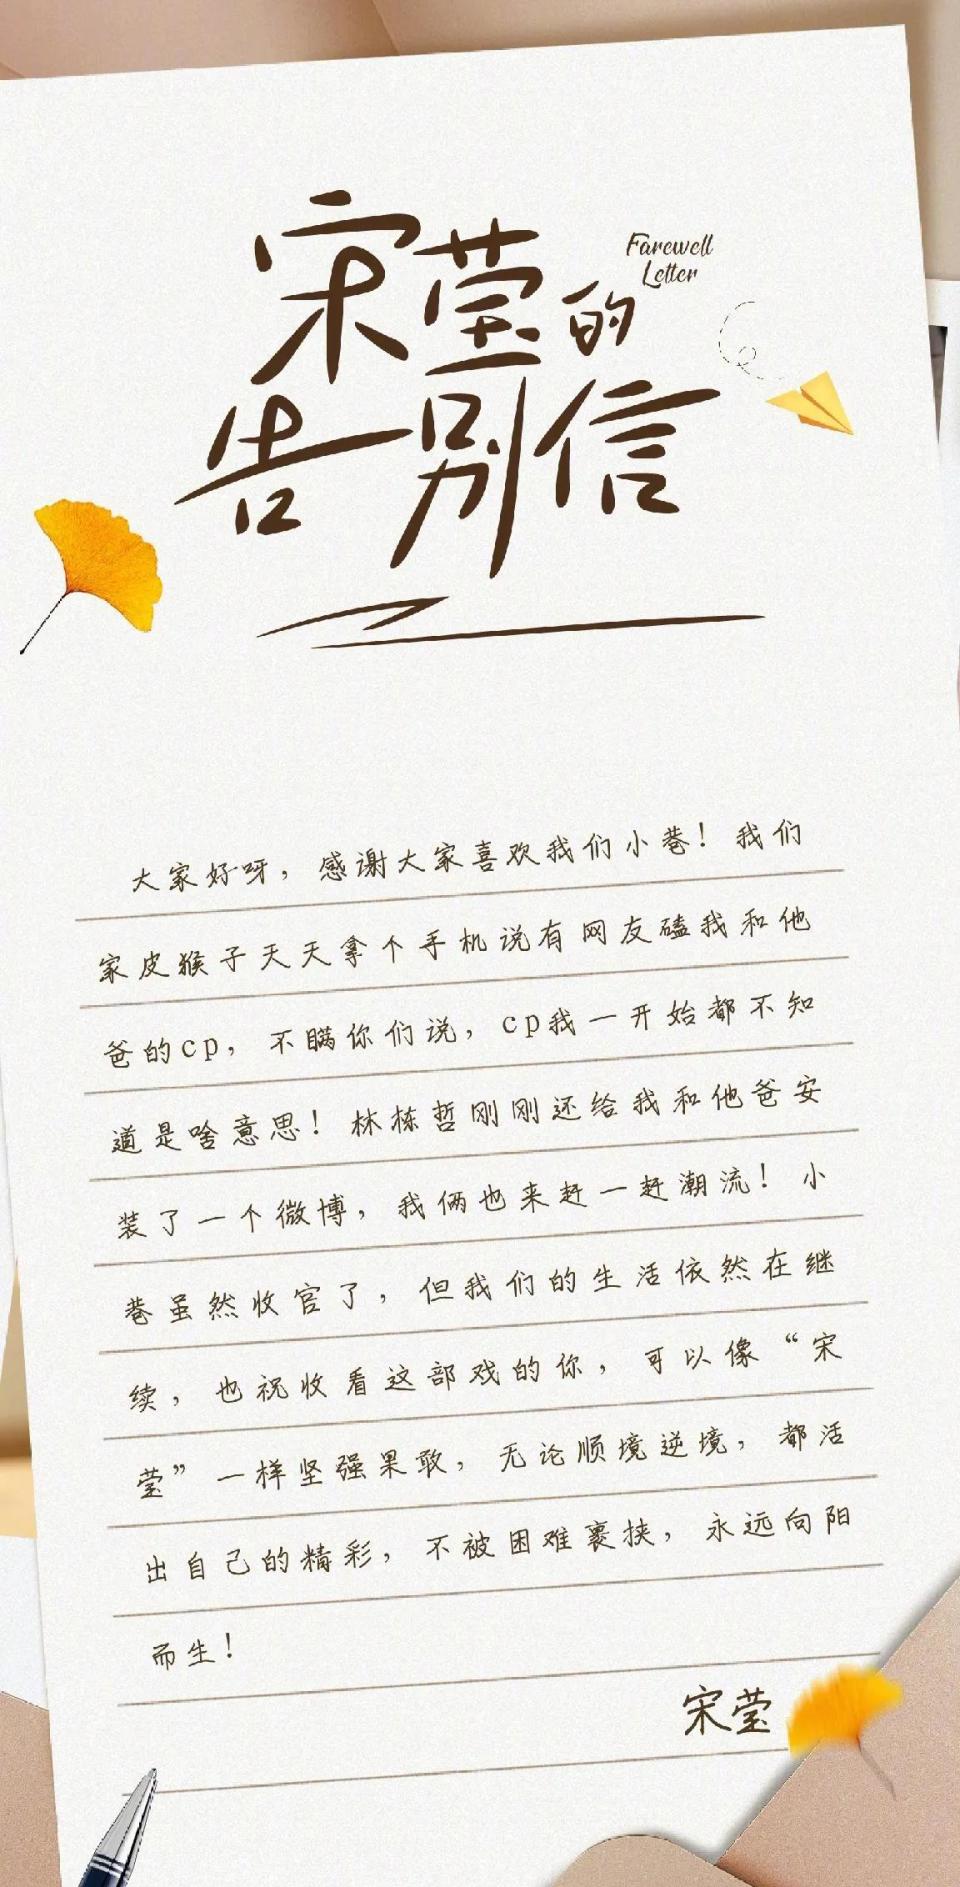 宋莹的
Farewell
Letter
告别信
大家好呀，感谢大家喜欢我们小巷！我们
家皮猴子天天拿个手机说有网友磕我和他
爸的cp，不瞒你们说，cp我一开始都不知
道是啥意思！林栋哲刚刚还给我和他爸安
装了一个微博，我俩也来赶一赶潮流！小
巷虽然收官了，但我们的生活依然在继
续，也祝收看这部戏的你，可以像“宋
莹”一样坚强果敢，无论顺境逆境，都活
出自己的精彩，不被困难裹挟，永远向阳
而生！
宋莹